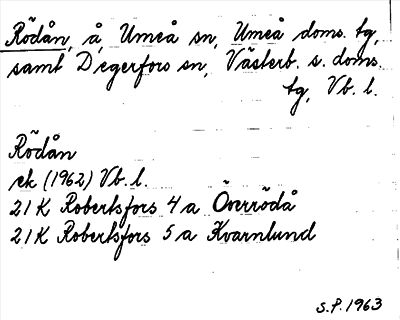 Rödån, å, Umeå sn, Umeå doms. tg,
samt Degerfors sn, Västerb. s. doms.
tg, Vb. l.
Rödån
ek (1962) Vb. l.
21 K Robertsfors 4 a Överrödå
21 K Robertsfors 5 a Kvarnlund
S.P. 1963